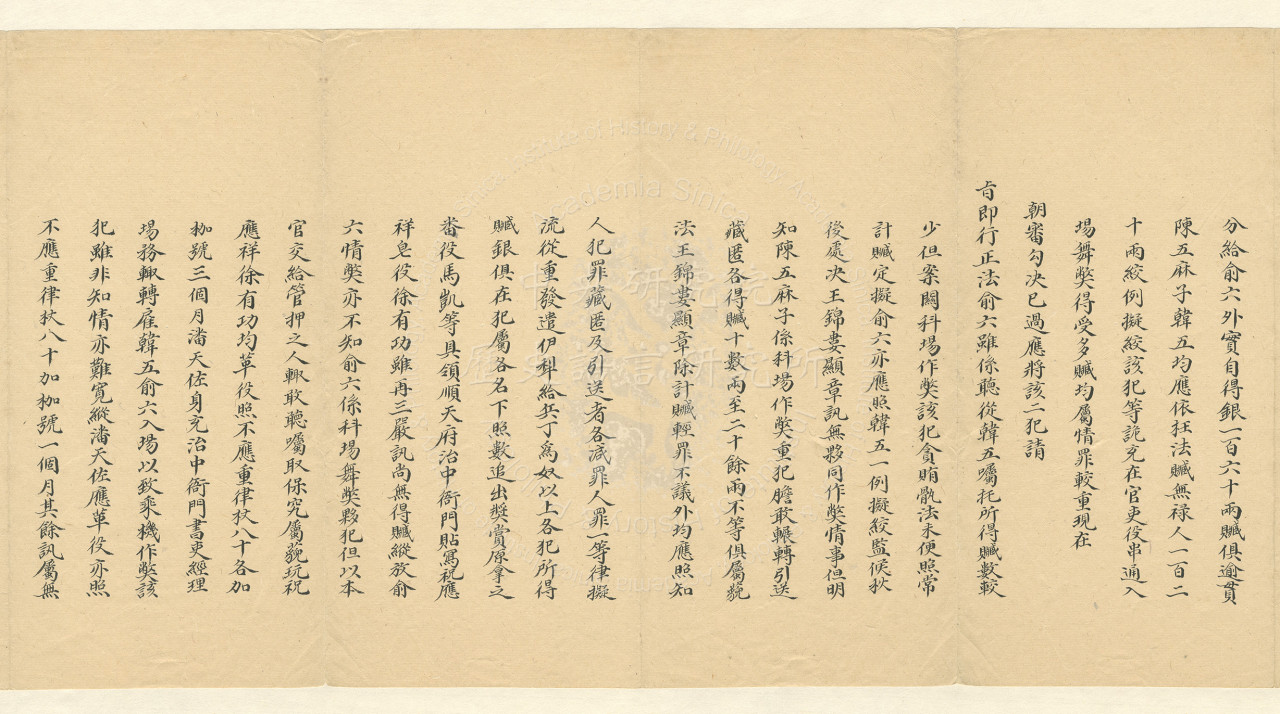 分給俞六外實自得銀一百六十兩贓俱逾貫
陳五麻子韓五均應依枉法贓無祿人一百二
十兩絞例擬絞該犯等詭充在官吏役串通入
場舞弊得受多贓均屬情罪較重現在
朝審勾決已過應將該二犯請
旨即行正法俞六雖係聽從韓五囑托所得贓數較
少但案關科場作弊該犯貪賄骫法未便照常
計贓定擬俞六亦應照韓五一例擬絞監候秋
後處決王錦婁顯章訊無夥同作弊情事但明
知陳五麻子係科場作弊重犯膽敢輾轉引送
藏匿各得贓十數兩至二十餘兩不等俱屬藐
法王錦婁顯章除計贓輕罪不議外均應照知
人犯罪藏匿及引送者各減罪人罪一等律擬
流從重發遣伊犁給兵丁為奴以上各犯所得
贓銀俱在犯屬各名下照數追出獎賞原拿之
番役馬凱等具領順天府治中衙門貼寫祝應
祥皂役徐有功雖再三嚴訊尚無得贓縱放俞
六情弊亦不知俞六係科場舞弊夥犯但以本
官交給管押之人輒敢聽囑取保究屬藐玩祝
應祥徐有功均革役照不應重律杖八十各加
枷號三個月潘天佐身充治中衙門書吏經理
場務輒轉雇韓五俞六入場以致乘機作弊該
犯雖非知情亦難寬縱潘天佐應革役亦照
不應重律杖八十加枷號一個月其餘訊屬無
中央研究院
歷史語言研究所
Institute of History & Philology, Academia Sinica